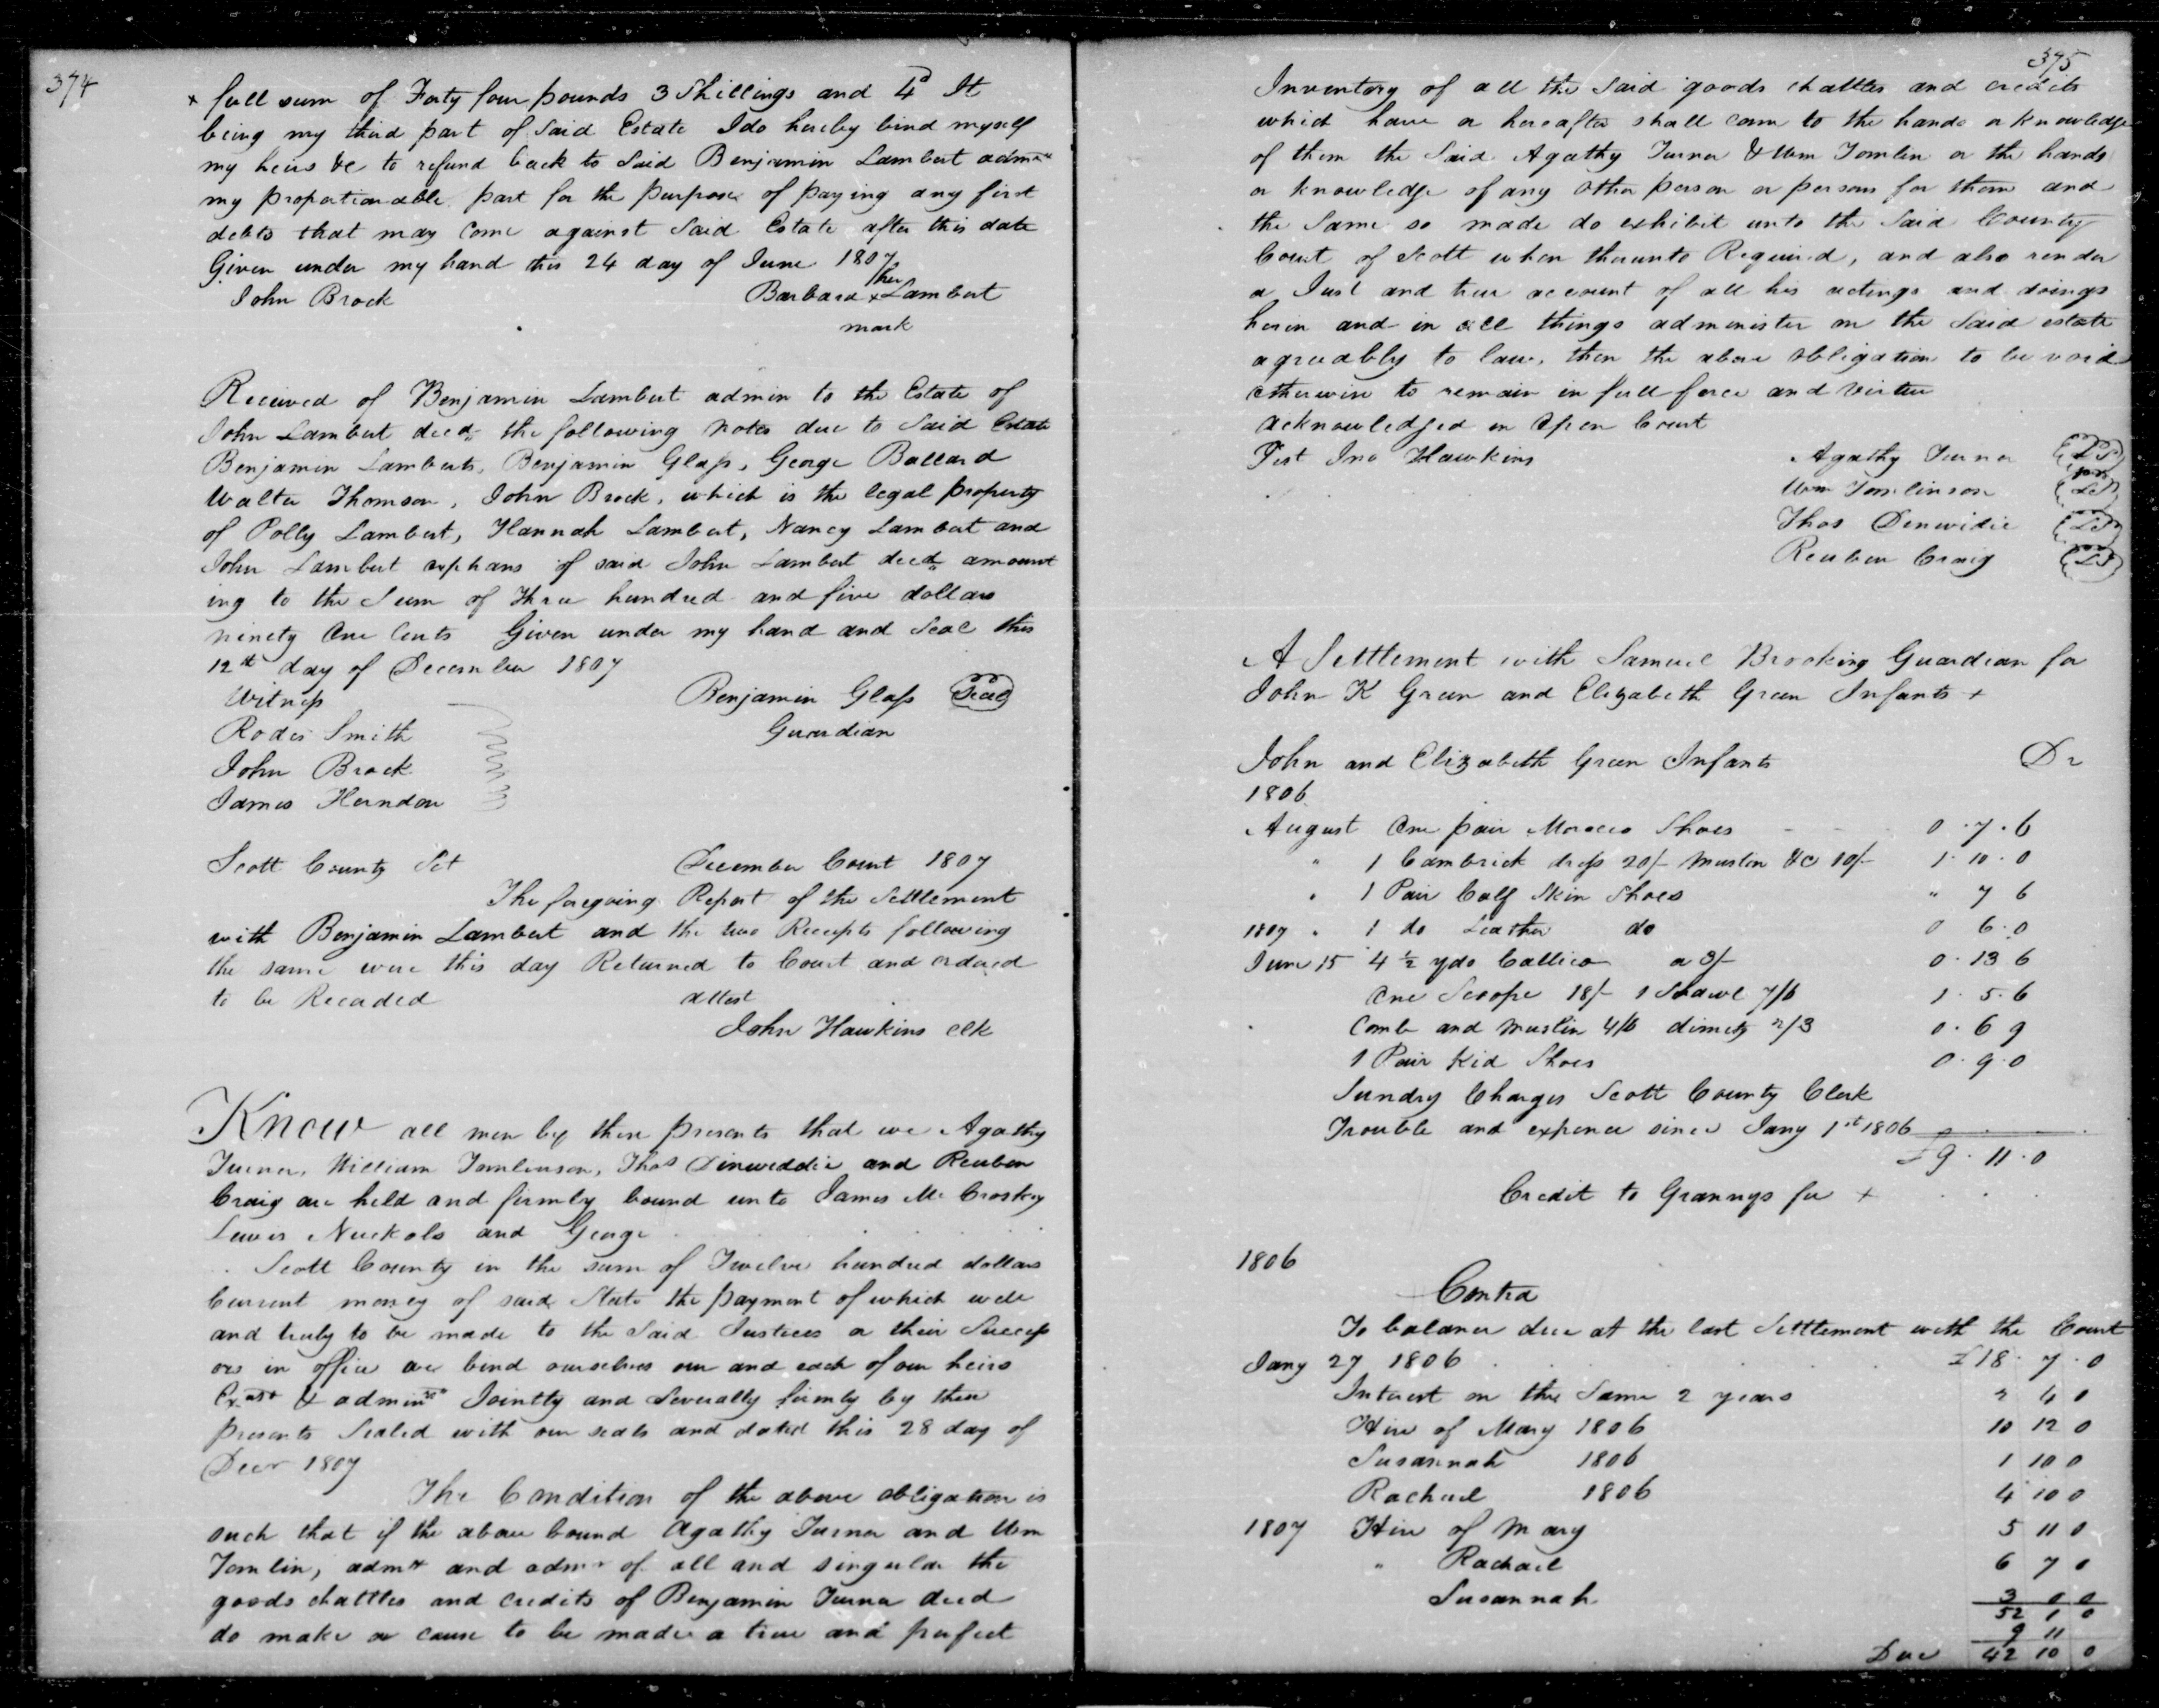 374
+ full sum of Forty four pounds 3 Shillings and 4d It
being my third part of Said Estate I do hereby bind myself
my heirs &c to refund back to Said Benjamin Lambert admr
my proportionable part for the purpose of paying any first
debts that may come against Said Estate after this date
Given under my hand this 24 day of June 1807
her
John Brock Barbara x Lambert
mark
Received of Benjamin Lambert admin to the Estate of
John Lambert decd the following notes due to Said Estate
Benjamin Lamberts, Benjamin Glass, George Ballard
Walter Thomson, John Brock, which is the legal property
of Polly Lambert, Hannah Lambert, Nancy Lambert and
John Lambert orphans of said John Lambert decd amount
ing to the Sum of Three hundred and five dollars
ninety One Cents Given under my hand and Seal this
12th day of December 1807
Witness Benjamin Glass Seal
Rodes Smith Guardian
John Brock
James Herndon
Scott County Sct December Court 1807
The foregoing Report of the Settlement
with Benjamin Lambert and the two Receipts following
the same were this day Returned to Court and ordered
to be Recorded attest
John Hawkins clk
Know all men by these presents that we Agathy
Turner, William Tomlinson, Thos Dinwiddie and Reuben
Craig are held and firmly bound unto James Mc Croskey
Lewis Nuckols and George
Scott County in the sum of Twelve hundred dollars
Current money of said State the payment of which well
and truly to be made to the Said Justices or their Success
ors in office we bind ourselves our and each of our heirs
Exors & admins Jointly and Severally firmly by these
presents Sealed with our seals and dated this 28 day of
Decr 1807
The Condition of the above obligation is
such that if the above bound Agathy Turner and Wm
Tomlin, admx and admr of all and singular the
goods chattles and credits of Benjamin Turner decd
do make or cause to be made a true and perfect
375
Inventory of all the Said goods chattles and credits
which have or hereafter shall come to the hands or knowledge
of them the Said Agathy Turner & Wm Tomlin or the hands
or knowledge of any other person or persons for them and
the Same so made do exhibit unto the Said County
Court of Scott when thereunto Required, and also render
a Just and true account of all his actings and doings
herein and in all things administer on the Said estate
agreeably to law, then the above obligation to be void
otherwise to remain in full force and virtue
Acknowledged in Open Court
Test Jno Hawkins Agathy Turner LS
Wm Tomlinson LS
Thos Dinwidie LS
Reuben Craig LS
A Settlement with Samuel Brooking Guardian for
John K Green and Elizabeth Green Infants +
John and Elizabeth Green Infants Dr
1806
August One pair Morocco Shoes 0.7.6
" 1 Cambrick dress 20/- Muslin &c 10/- 1.10.0
" 1 Pair Calf Skin Shoes " 7 6
1807 " 1 do Leather do 0 6.0
June 15 4 ½ yds Callico a 3/- 0.13 6
One Scoope 18/- 1 Shawl 7/6 1.5.6
Comb and Muslin 4/6 dimity 2/3 0.6 9
1 Pair Kid Shoes 0.9.0
Sundry Charges Scott County Clerk
Trouble and expence since Jany 1st 1806
£9.11.0
Credit to Grannys fee +
1806
Contra
To balance due at the last Settlement with the Court
Jany 27 1806 £18.7.0
Interest on the Same 2 years 2 4 0
Hire of Mary 1806 10 12 0
Susannah 1806 1 10 0
Rachael 1806 4 10 0
1807 Hire of Mary 5 11 0
" Rachael 6 7 0
Susannah 3 0 0
52 1 0
9 11
Due 42 10 0